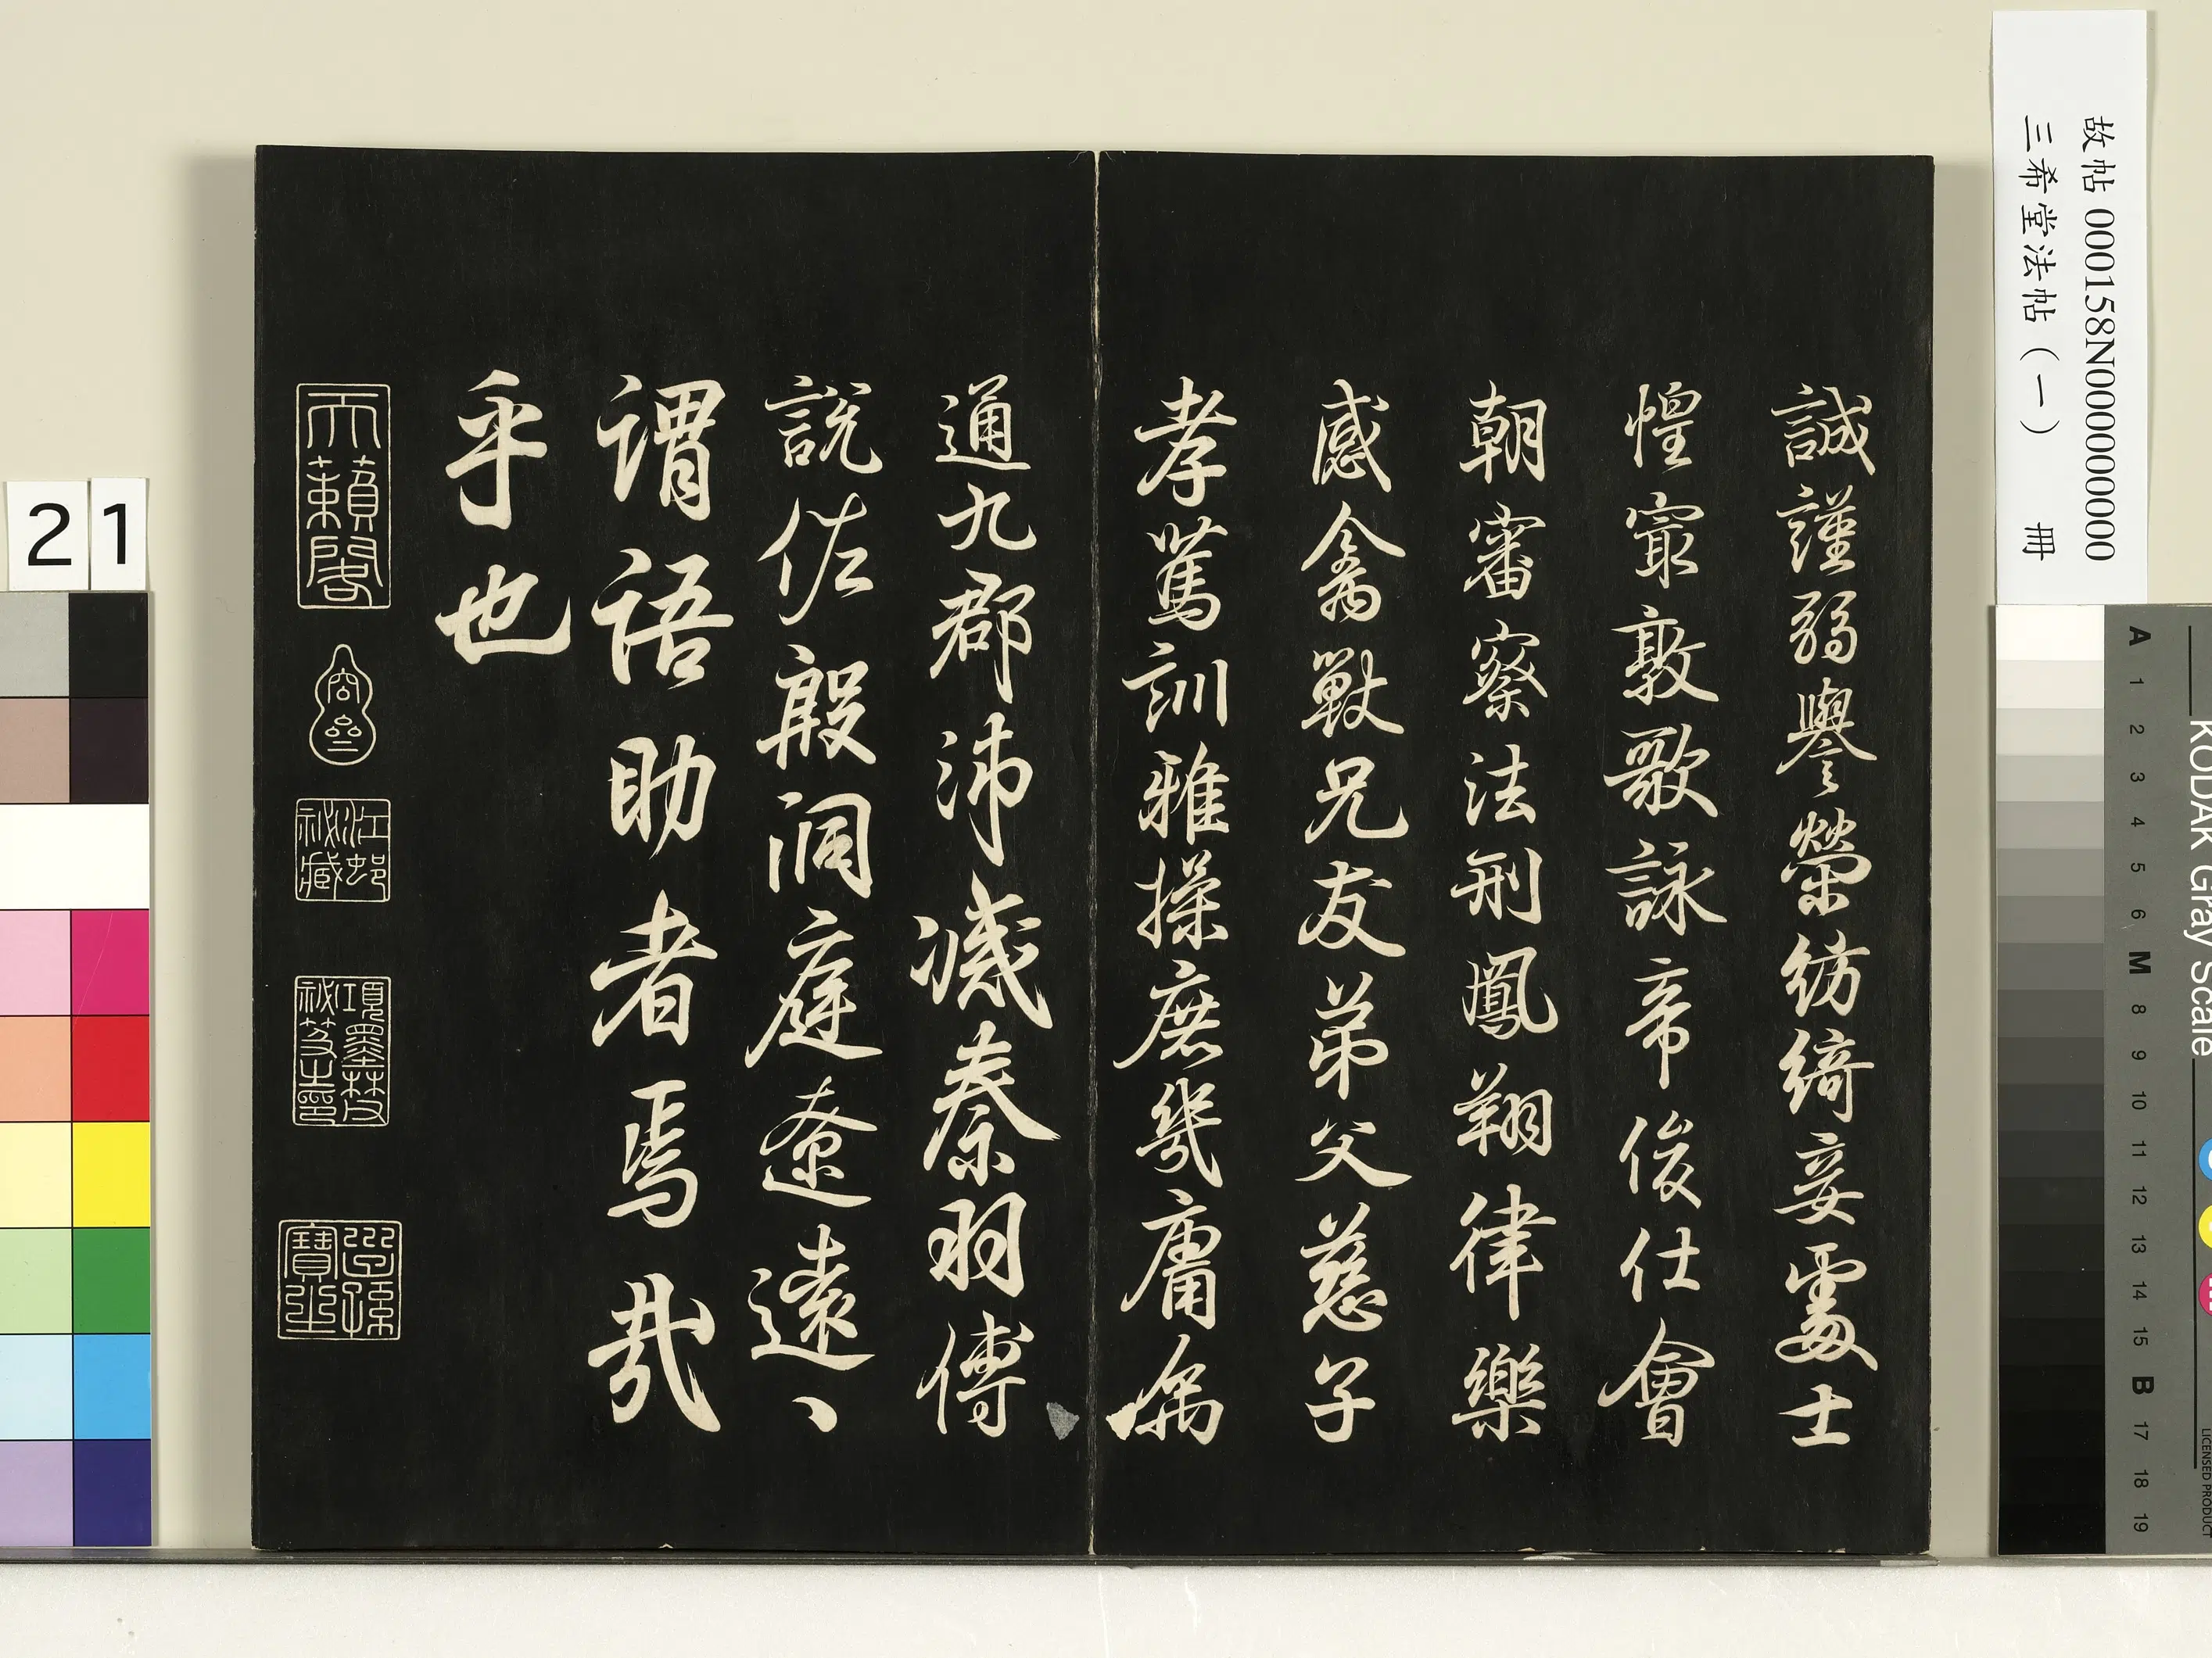 誠謹翦譽榮紡綺妾處士
惶寂敦歌詠帝俊仕會
朝審察法刑鳳翔律樂
感禽獸兄友弟父慈子
孝篤訓雅操庶幾庸
通九郡沛滅秦羽傅
說佐殷洞庭遼遠丶
謂語助者焉哉
乎也
天籟閣
江邨
祕藏
項墨林
祕笈之印
子孫
寶
21
故帖 000158N000000000
三希堂法帖(一) 冊
KODAK Gray Scale
LICENSED PRODUCT
A 1 2 3 4 5 6 M 8 9 10 11 12 13 14 15 B 17 18 19